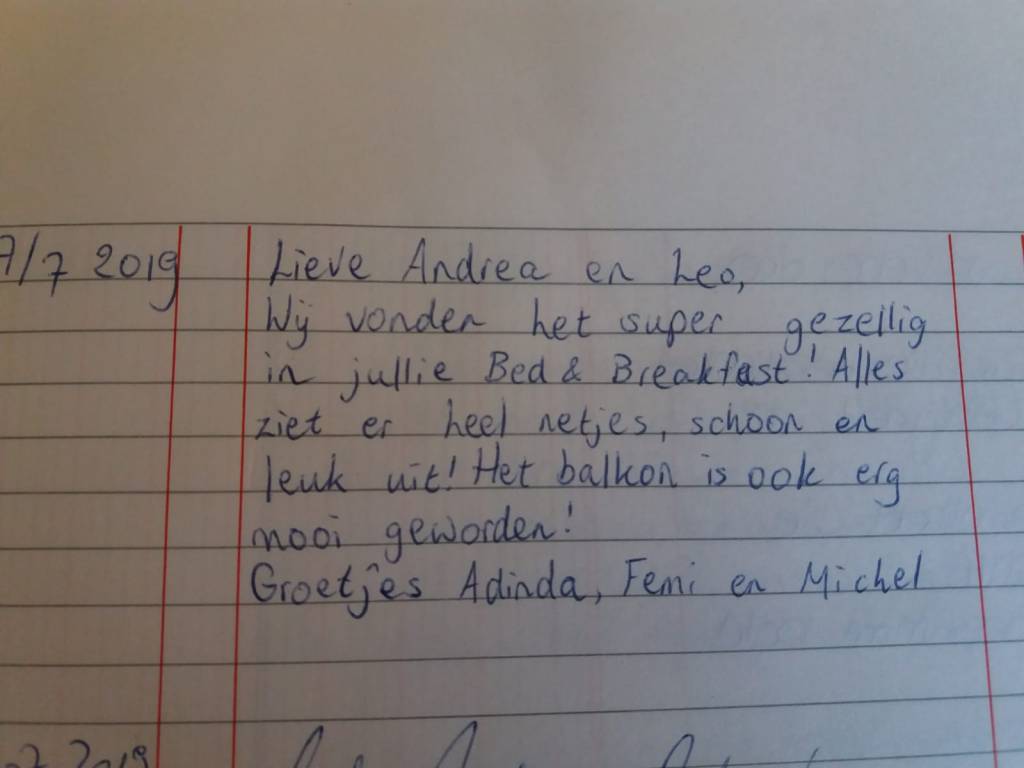 7/7 2019 Lieve Andrea en Leo,
Wij vonden het super gezellig
in jullie Bed & Breakfast! Alles
ziet er heel netjes, schoon en
leuk uit! Het balkon is ook erg
mooi geworden!
Groetjes Adinda, Femi en Michel
2019